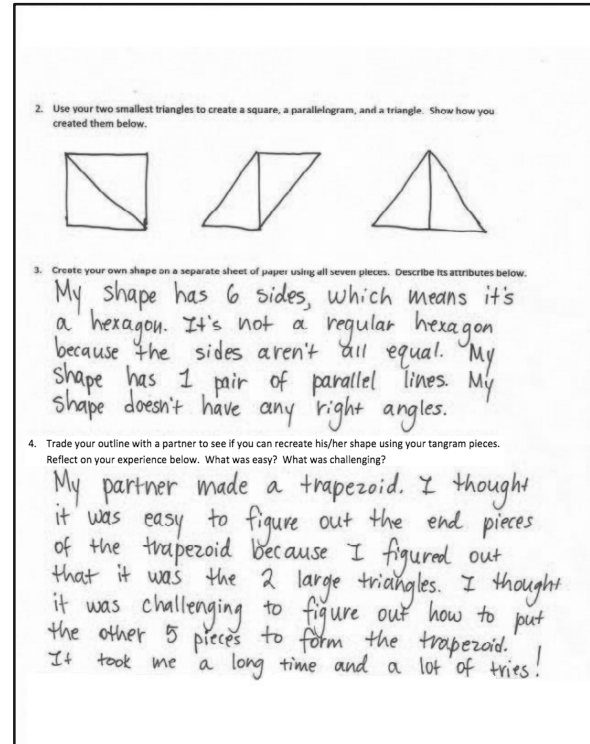 2. Use your two smallest triangles to create a square, a parallelogram, and a triangle. Show how you
created them below.
3. Create your own shape on a separate sheet of paper using all seven pieces. Describe its attributes below.
My shape has 6 sides, which means it's
a hexagon. It's not a regular hexagon
because the sides aren't all equal. My
shape has 1 pair of parallel lines. My
shape doesn't have any right angles.
4. Trade your outline with a partner to see if you can recreate his/her shape using your tangram pieces.
Reflect on your experience below. What was easy? What was challenging?
My partner made a trapezoid. I thought
it was easy to figure out the end pieces
of the trapezoid because I figured out
that it was the 2 large triangles. I thought
it was challenging to figure out how to put
the other 5 pieces to form the trapezoid.
It took me a long time and a lot of tries!